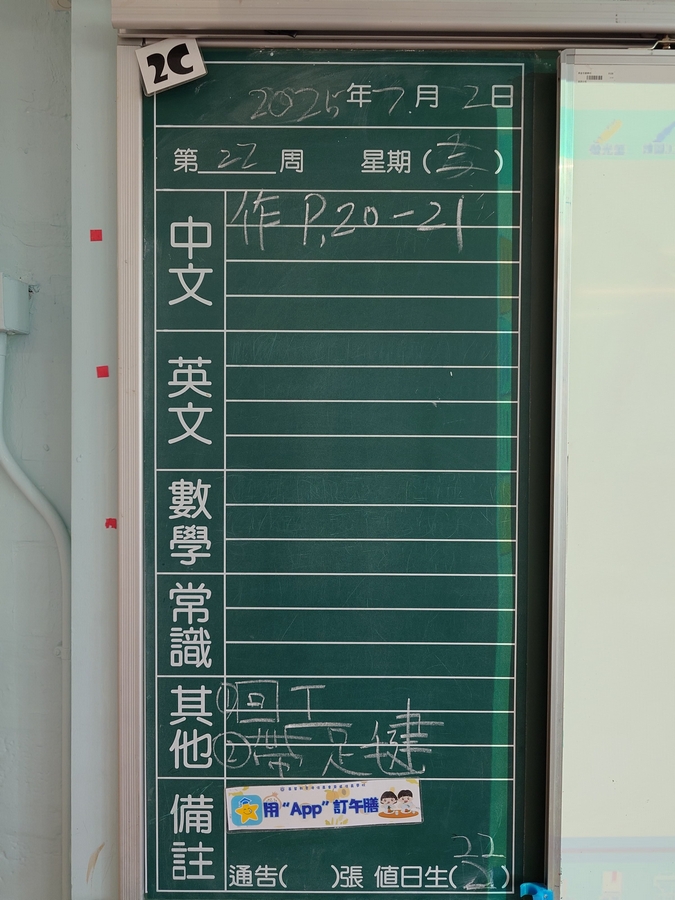 2C
2025年7月2日
第22周 星期(三)
中文
作 P.20-21
英文
數學
常識
其他
①回工
②帶足毽
備註
用“App”訂午膳
通告( )張 值日生(22 21)